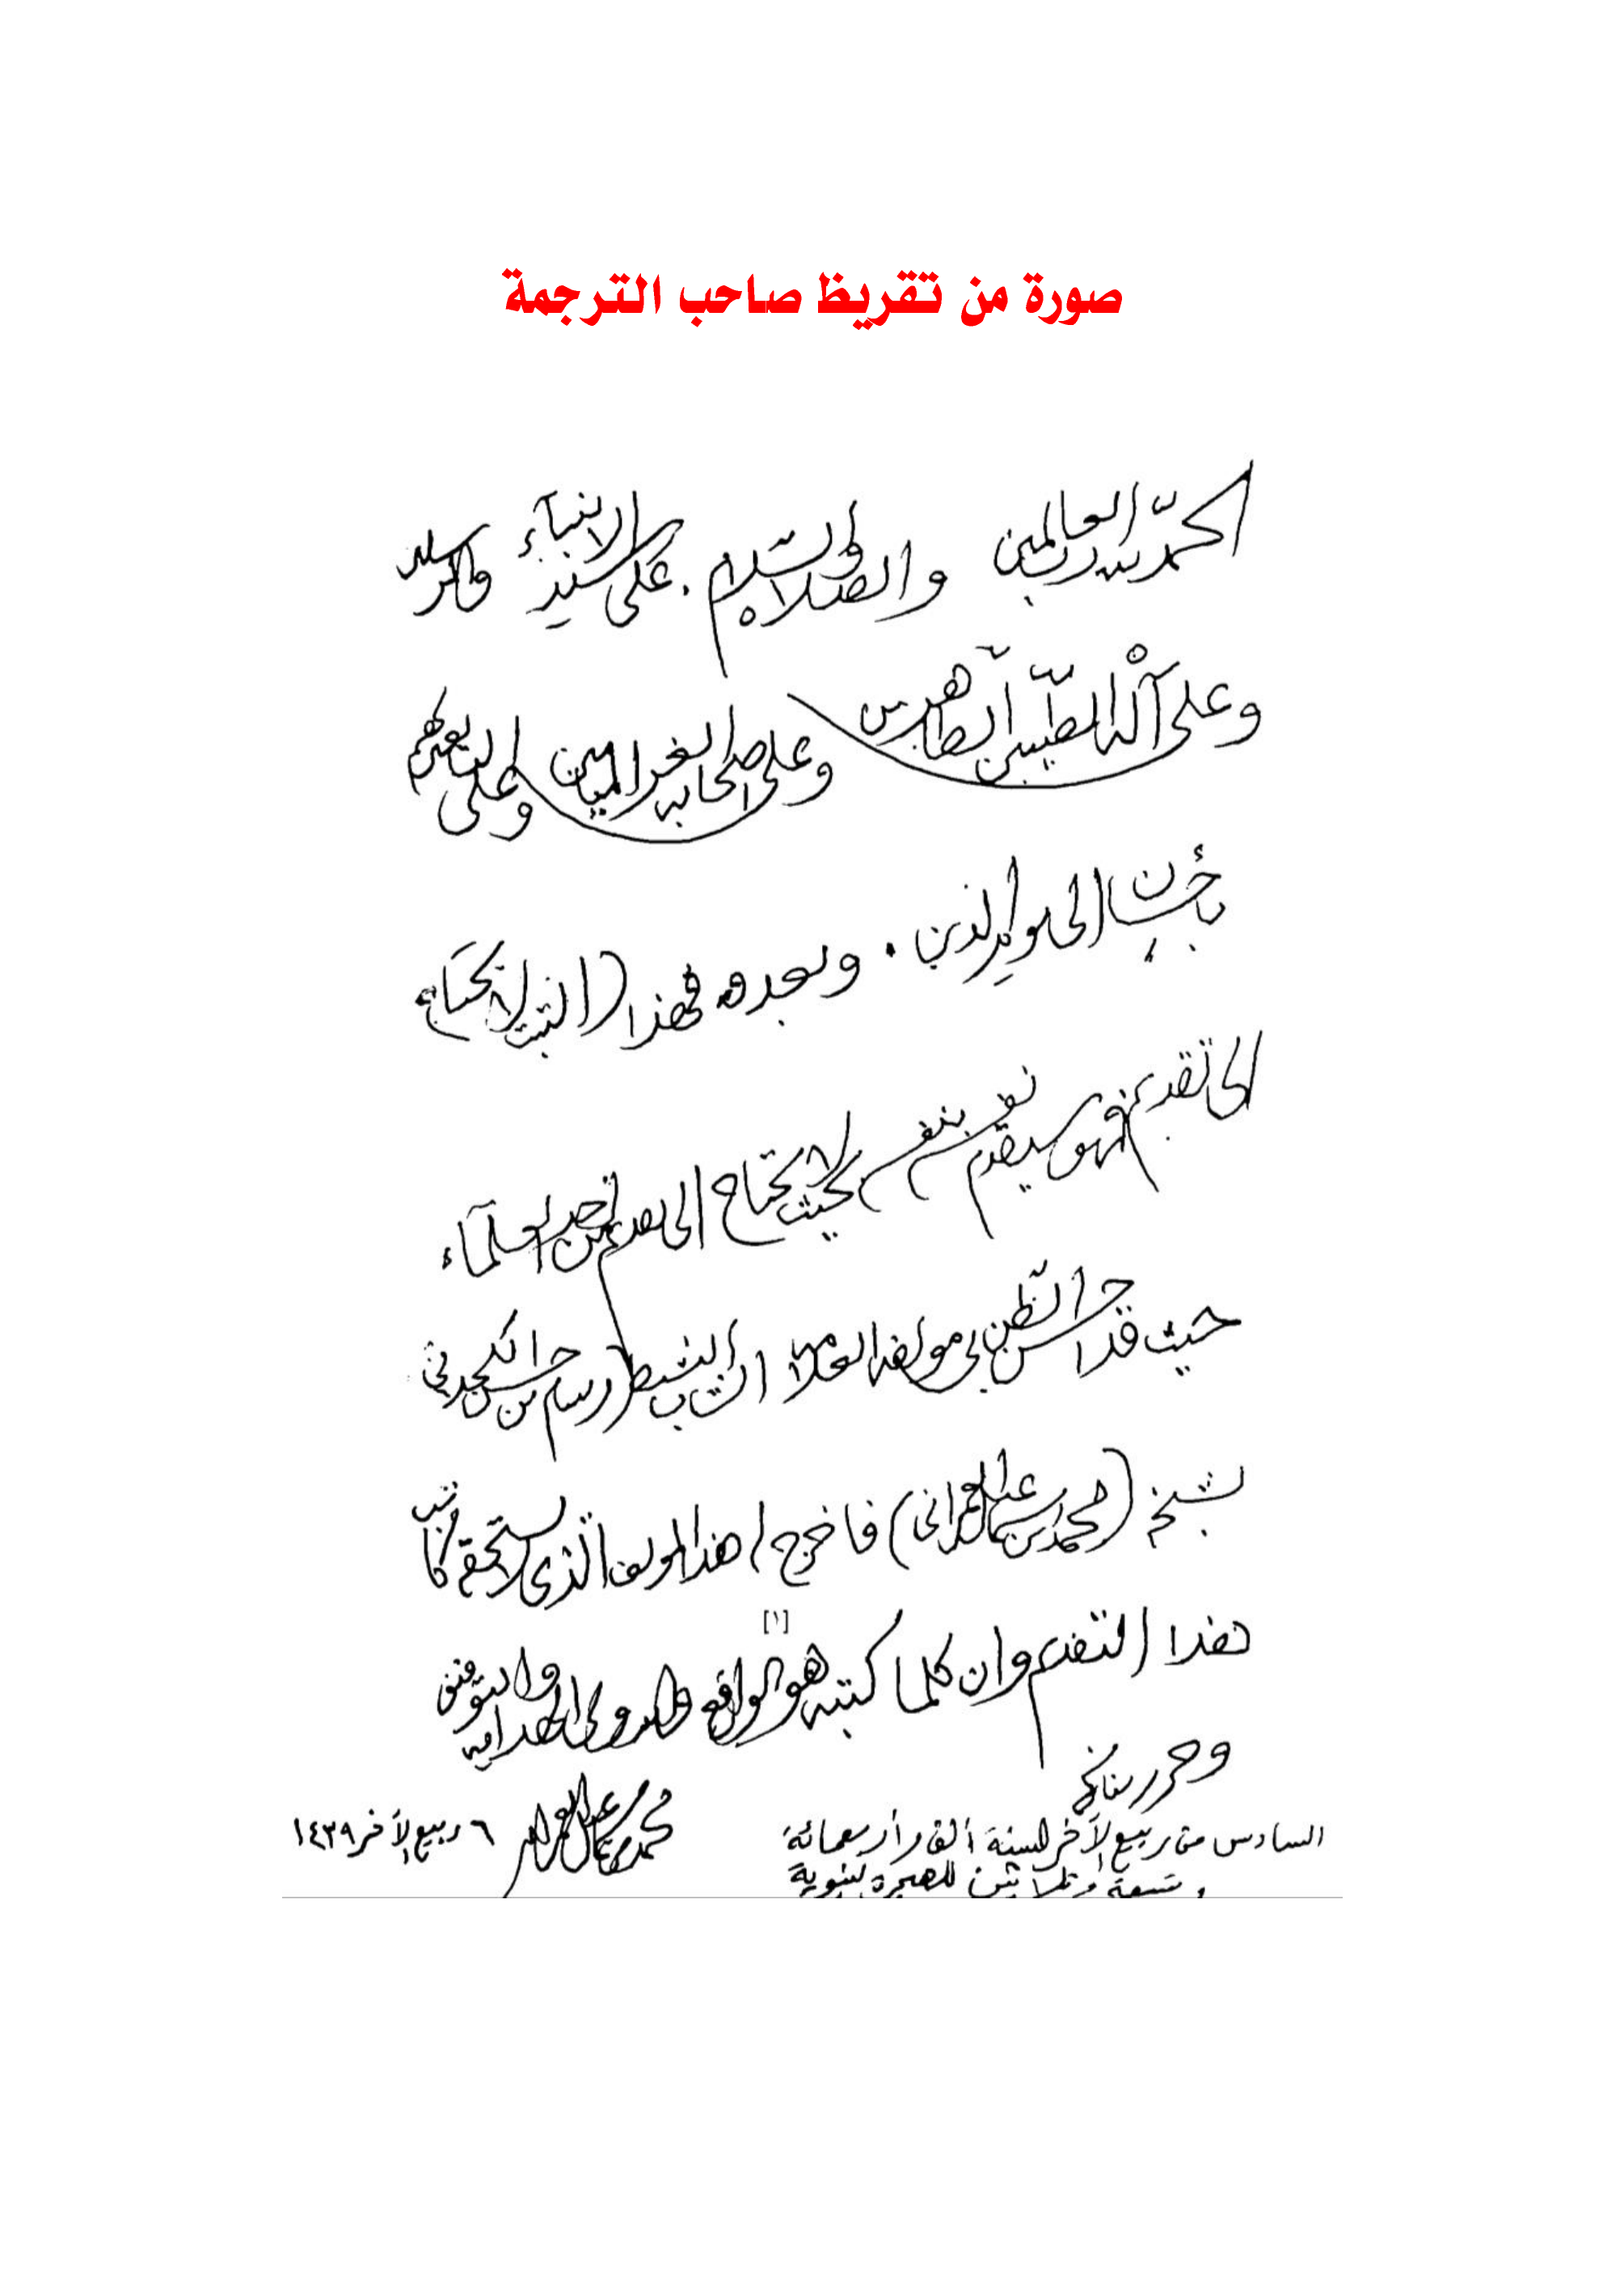 صورة من تقريظ صاحب الترجمة
الحمد لله رب العالمين والصلاة والسلام على سيد الانبياء والمرسلين
وعلى آله الطيبين الطاهرين وعلى اصحابه الغر الميامين وعلى التابعين لهم
بإحسان الى يوم الدين . وبعد فهذا (الثبت لا يحتاج
الى تقديم فهو سيقدم نفسه بنفسه بحيث لا يحتاج الى تقديم من احد العلماء
حيث قد احسن الظن بي مولفه العلامة الشاب النشيط (وسام بن حسن الكحلاني
لشيخه (محمد بن اسماعيل العمراني) فاخرج هذا المولف الذي يستحق
هذا التقديم وان كلما كتبه هو الواقع والله ولي الهداية والتوفيق
[١]
وحرر بتاريخ
السادس من ربيع الآخر لسنة ألف وأربعمائة
وتسعة وثلاثين للهجرة النبوية
محمد بن اسماعيل العمراني
٦ ربيع الآخر ١٤٣٩